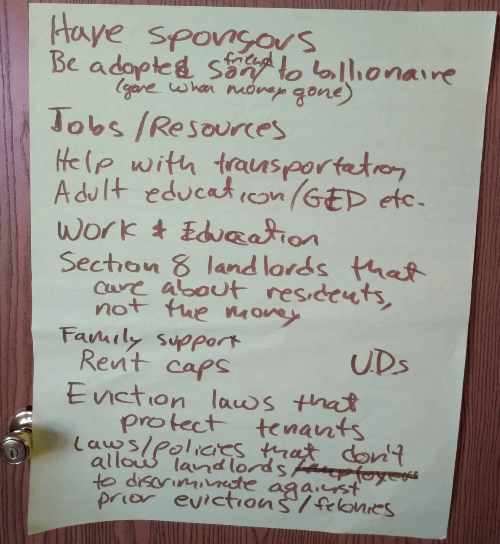 Have sponsors
Be adopted son/friend to billionaire
(gone when money gone)
Jobs/Resources
Help with transportation
Adult education/GED etc.
Work & Education
Section 8 landlords that
care about residents,
not the money
Family support
Rent caps UDs
Eviction laws that
protect tenants
Laws/policies that don't
allow landlords
to discriminate against
prior evictions/felonies